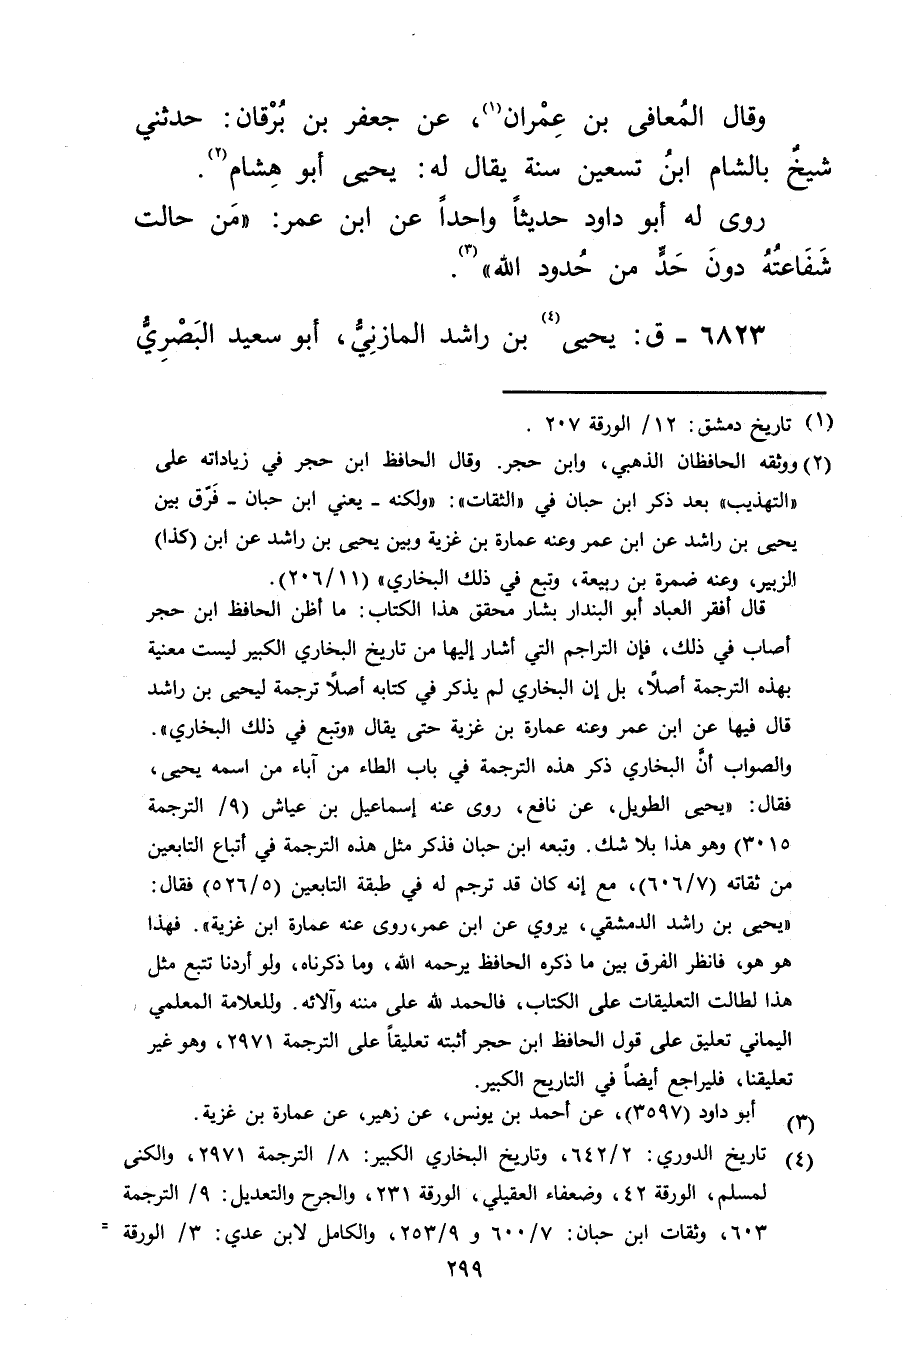 وقال المُعافى بن عِمْران(١)، عن جعفر بن بُرْقان: حدثني
شيخٌ بالشام ابنُ تسعين سنة يقال له: يحيى أبو هِشام(٢).
روى له أبو داود حديثاً واحداً عن ابن عمر: «مَن حالت
شَفَاعتُهُ دونَ حَدٍّ من حُدود الله»(٣).
٦٨٢٣ ـ ق: يحيى(٤) بن راشد المازنِيُّ، أبو سعيد البَصْرِيُّ
(١) تاريخ دمشق: ١٢/ الورقة ٢٠٧ .
(٢) ووثقه الحافظان الذهبي، وابن حجر. وقال الحافظ ابن حجر في زياداته على
«التهذيب» بعد ذكر ابن حبان في «الثقات»: «ولكنه ـ يعني ابن حبان ـ فَرّق بين
يحيى بن راشد عن ابن عمر وعنه عمارة بن غزية وبين يحيى بن راشد عن ابن (كذا)
الزبير، وعنه ضمرة بن ربيعة، وتبع في ذلك البخاري» (٢٠٦/١١).
قال أفقر العباد أبو البندار بشار محقق هذا الكتاب: ما أظن الحافظ ابن حجر
أصاب في ذلك، فإن التراجم التي أشار إليها من تاريخ البخاري الكبير ليست معنية
بهذه الترجمة أصلًا، بل إن البخاري لم يذكر في كتابه أصلًا ترجمة ليحيى بن راشد
قال فيها عن ابن عمر وعنه عمارة بن غزية حتى يقال «وتبع في ذلك البخاري».
والصواب أنَّ البخاري ذكر هذه الترجمة في باب الطاء من آباء من اسمه يحيى،
فقال: «يحيى الطويل، عن نافع، روى عنه إسماعيل بن عياش (٩/ الترجمة
٣٠١٥) وهو هذا بلا شك. وتبعه ابن حبان فذكر مثل هذه الترجمة في أتباع التابعين
من ثقاته (٦٠٦/٧)، مع إنه كان قد ترجم له في طبقة التابعين (٥٢٦/٥) فقال:
«يحيى بن راشد الدمشقي، يروي عن ابن عمر،روى عنه عمارة ابن غزية». فهذا
هو هو، فانظر الفرق بين ما ذكره الحافظ يرحمه الله، وما ذكرناه، ولو أردنا تتبع مثل
هذا لطالت التعليقات على الكتاب، فالحمد لله على مننه وآلائه. وللعلامة المعلمي
اليماني تعليق على قول الحافظ ابن حجر أثبته تعليقاً على الترجمة ٢٩٧١، وهو غير
تعليقنا، فليراجع أيضاً في التاريخ الكبير.
(٣) أبو داود (٣٥٩٧)، عن أحمد بن يونس، عن زهير، عن عمارة بن غزية.
(٤) تاريخ الدوري: ٦٤٢/٢، وتاريخ البخاري الكبير: ٨/ الترجمة ٢٩٧١، والكنى
لمسلم، الورقة ٤٢، وضعفاء العقيلي، الورقة ٢٣١، والجرح والتعديل: ٩/ الترجمة
٦٠٣، وثقات ابن حبان: ٦٠٠/٧ و ٢٥٣/٩، والكامل لابن عدي: ٣/ الورقة =
٢٩٩